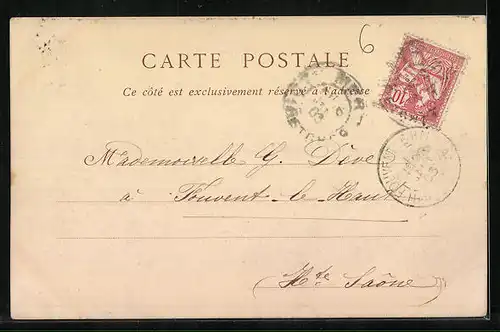 6
CARTE POSTALE
Ce côté est exclusivement réservé à l'adresse
10
Mademoiselle G. Dève
à Fouvent-le-Haut
Hte Saône